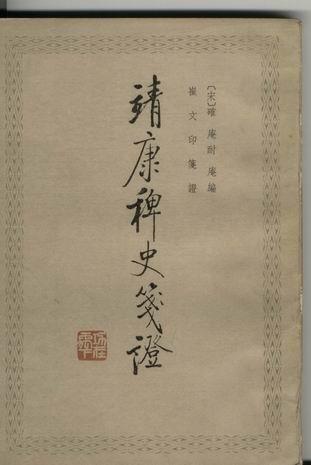 〔宋〕確 庵 耐 庵 編
崔 文 印 箋 證
靖康稗史箋證